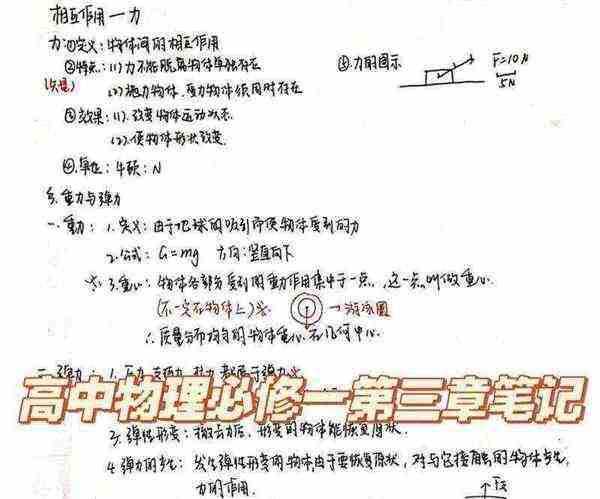 相互作用一力
力:①定义:物体间的相互作用
②特点:(1)力不能脱离物体单独存在
(2)施力物体、受力物体须同时存在
③效果:(1).改变物体运动状态.
(2).使物体形状改变.
④.单位:牛顿:N
⑤.力的图示
F=10N
5N
重力与弹力
一.重力:1.定义:由于地球的吸引而使物体受到的力
2.公式:G=mg 方向:竖直向下
3.重心:物体各部分受到的重力作用集中于一点,这一点叫做重心
(不一定在物体上)
→游泳圈
∴质量分布均匀的物体重心在几何中心.
二.弹力:1.压力 支持力 拉力 都属于弹力
高中物理必修一第三章笔记
3.弹性形变:撤去力后、形变的物体能恢复原状.
4.弹力的产生:发生弹性形变的物体由于要恢复原状,对与它接触的物体产生
力的作用.